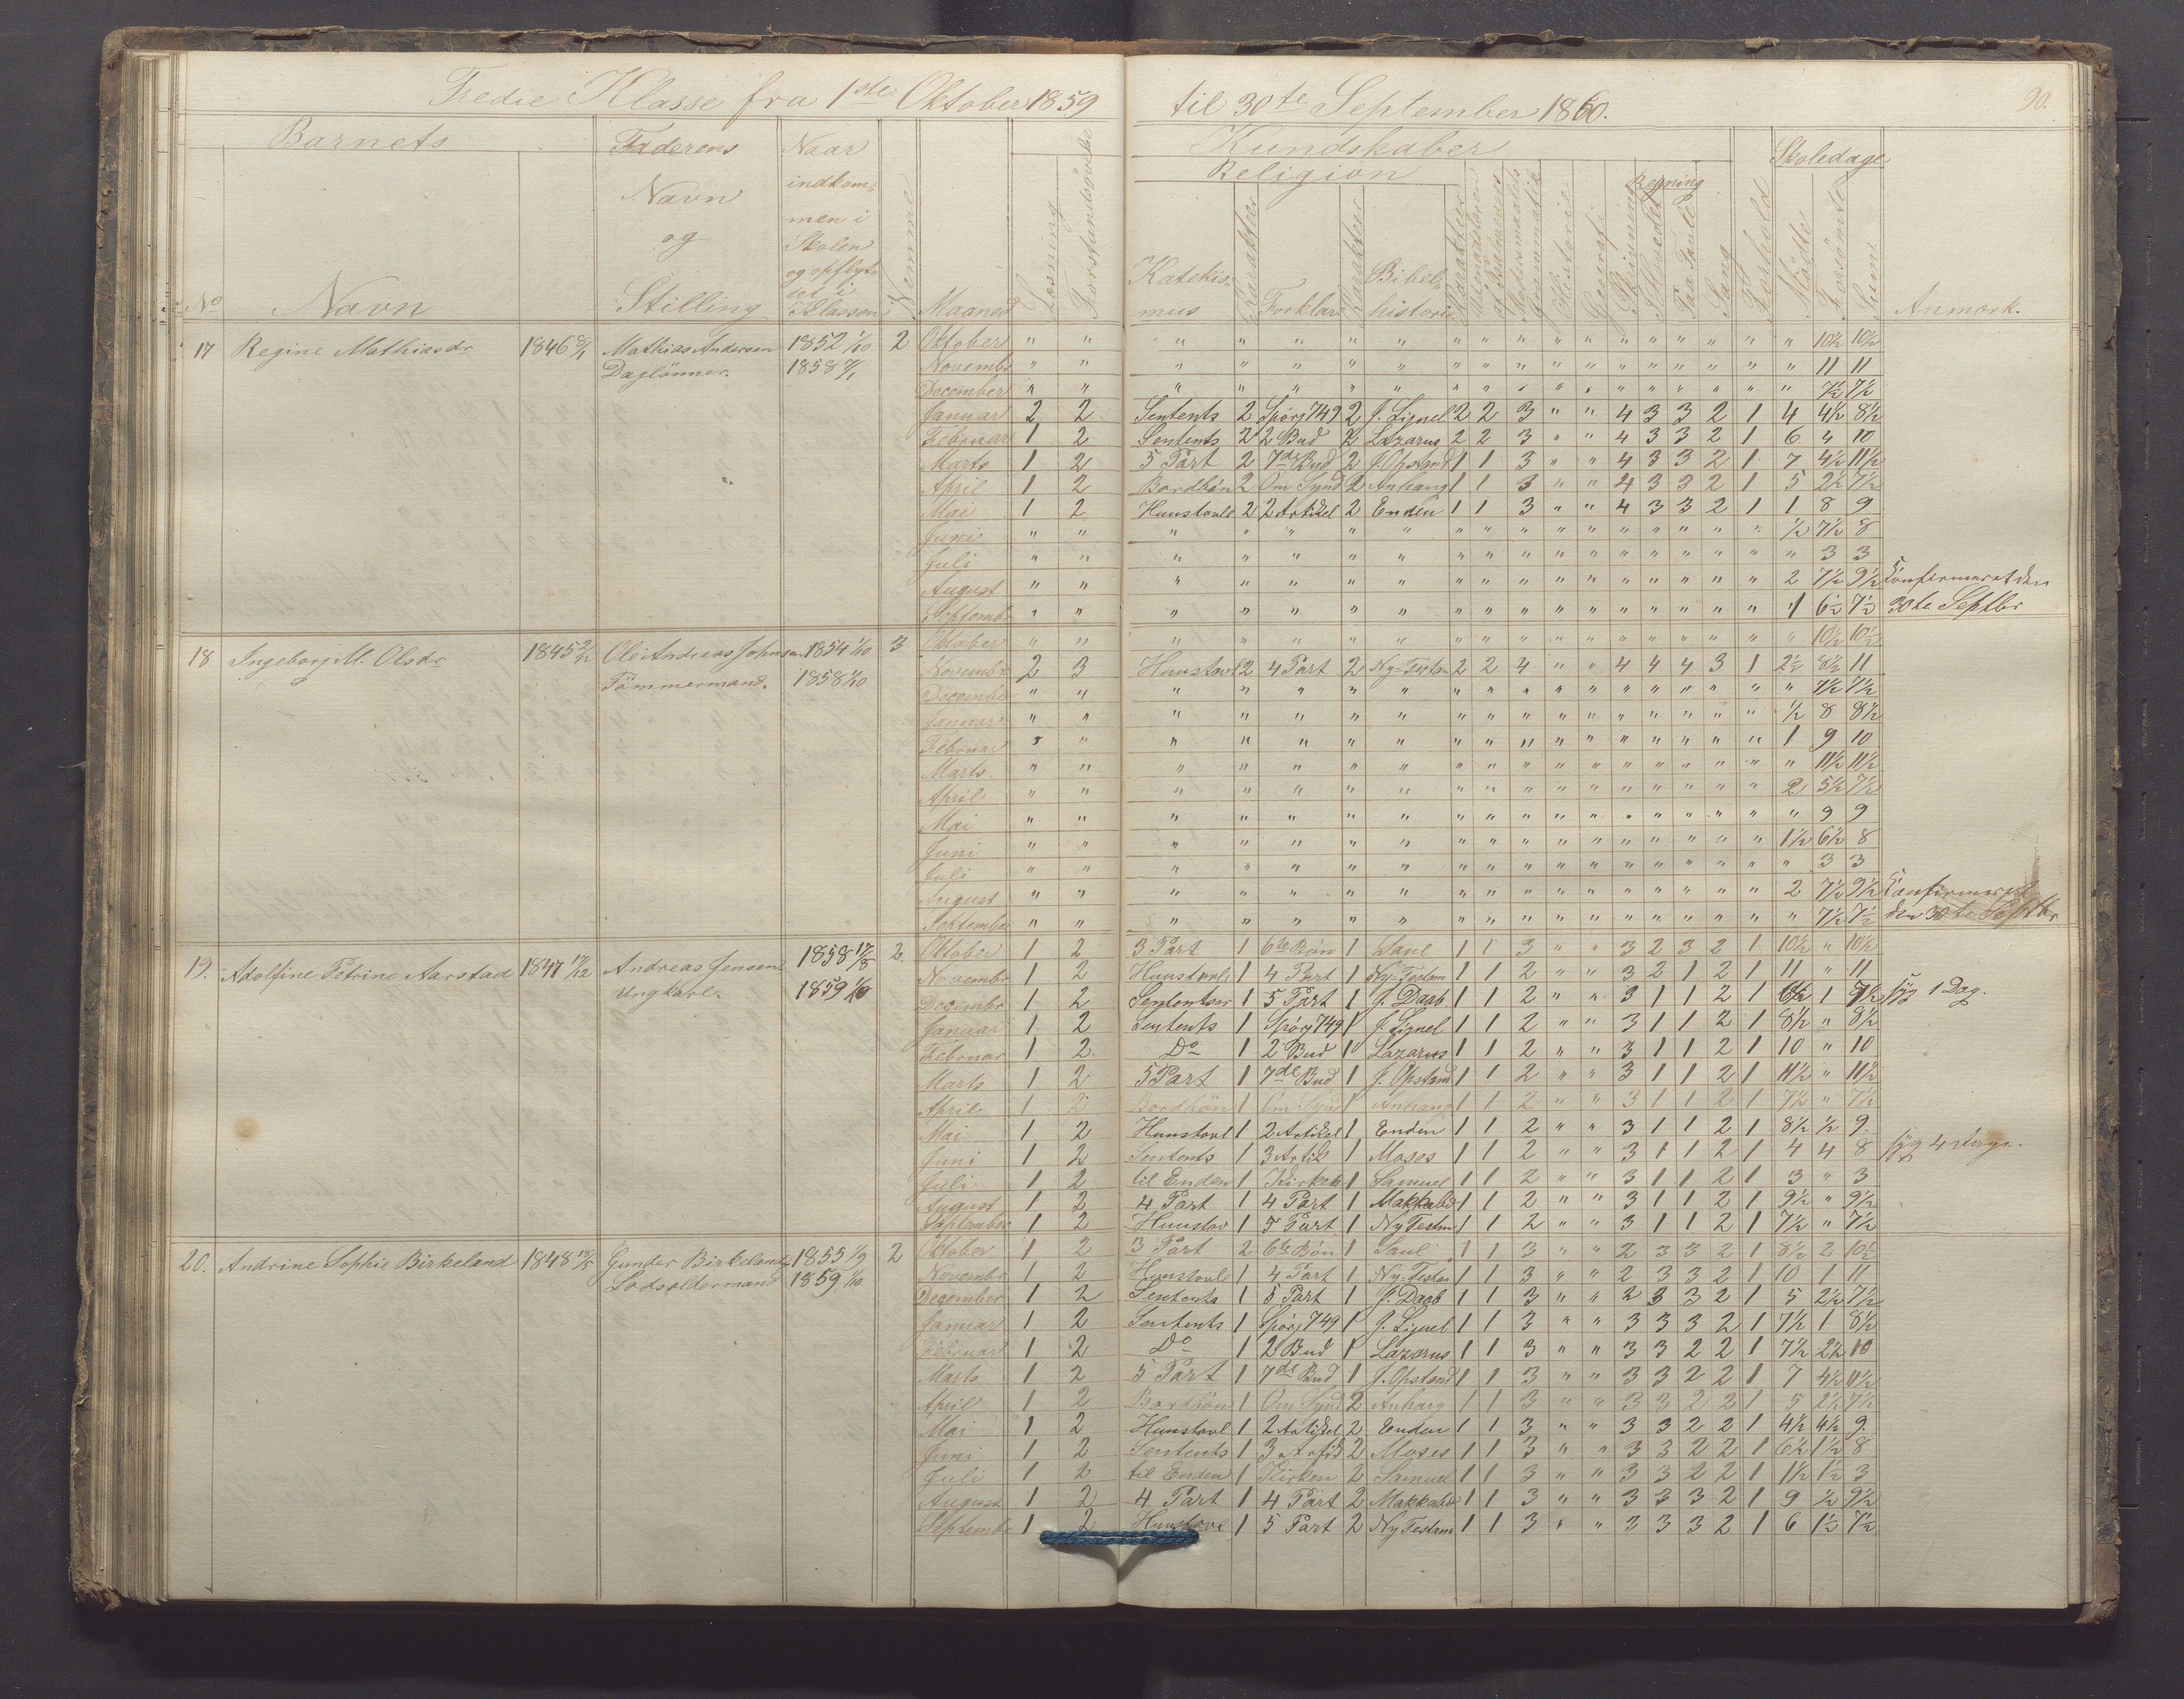 Tredie Klasse fra 1ste Oktober 1859 til 30te September 1860. 90.
Barnets Faderens Naar Kundskaber Skoledage
Navn indkom- Religion Regning
og men i
Skolen
og opflyt-
tet i
No Navn Stilling Klassen Nemme Maaned Læsning Forstandsøvelse Katekis- mus Karakter Forklar Karakter Bibel- historie Karakter Historie Geografi Skrivning Paa Tavle Sang Forhold Mødte Forsømte Sum Anmærk.
17 Regine Mathiasdr 1846 8/1 Mathias Andersen 1852 1/10 2 Oktober " " " " " " " " " " " " " " " " " " " 10½ 10½
Daglönner. 1858 7/1 Novembr " " " " " " " " " " " " " " " " " " " 11 11
December " " " " " " " " " " " " " " " " " " " 7½ 7½
Januar 2 2 Sentents 2 Spörg 749 2 J. Lignel 2 2 3 " " 4 3 3 2 1 4 4½ 8½
Februar 1 2 Sentents 2 2 Bud 2 Lazarus 2 2 3 " " 4 3 3 2 1 6 4 10
Marts 1 2 5 Part 2 7de Bud 2 J. Opstand 1 1 3 " " 4 3 3 2 1 7 4½ 11½
April 1 2 Bordbön 2 Om Synd 2 Anhang 1 1 3 " " 4 3 3 2 1 5 2½ 7½
Mai 1 2 Huustavle 2 2 Artikel 2 Enden 1 1 3 " " 4 3 3 2 1 1 8 9
Juni " " " " " " " " " " " " " " " " " " ½ 7½ 8
Juli " " " " " " " " " " " " " " " " " " " 3 3
August " " " " " " " " " " " " " " " " " " 2 7½ 9½ Konfirmeret den
Septembr " " " " " " " " " " " " " " " " " " 1 6½ 7½ 30te Septbr
18 Ingeborg M. Olsdr 1845 2/12 Ole Andreas Johnsen 1854 1/10 3 Oktober " " " " " " " " " " " " " " " " " " " 10½ 10½
Tömmermand. 1858 1/10 Novembr 2 3 Huustavl 2 4 Part 2 Ny-Testam 2 2 4 " " 4 4 4 3 1 2½ 8½ 11
December " " " " " " " " " " " " " " " " " " " 7½ 7½
Januar " " " " " " " " " " " " " " " " " " ½ 8 8½
Februar " " " " " " " " " " " " " " " " " " 1 9 10
Marts " " " " " " " " " " " " " " " " " " " 11½ 11½
April " " " " " " " " " " " " " " " " " " 2 5½ 7½
Mai " " " " " " " " " " " " " " " " " " " 9 9
Juni " " " " " " " " " " " " " " " " " " 1½ 6½ 8
Juli " " " " " " " " " " " " " " " " " " " 3 3
August " " " " " " " " " " " " " " " " " " 2 7½ 9½ Konfirmeret
September " " " " " " " " " " " " " " " " " " " 7½ 7½ den 30te Septbr
19. Adolfine Petrine Aarstad 1847 19/12 Andreas Jensen 1858 17/8 2. Oktober 1 2 3 Part 1 6te Bön 1 Saul 1 1 3 " " 3 2 3 2 1 10½ " 10½
Ungkarl. 1859 1/10 Novembr 1 2 Huustavle 1 4 Part 1 Ny-Testam 1 1 2 " " 3 2 1 2 1 11 " 11
Decembr 1 2 Sententser 1 5 Part 1 J. Daab 1 1 2 " " 3 1 1 2 1 6½ 1 7½ syg 1 Dag.
Januar 1 2 Sentents 1 Spörg 749 1 J. Lignel 1 1 2 " " 3 1 1 2 1 8½ " 8½
Februar 1 2 Do 1 2 Bud 1 Lazarus 1 1 2 " " 3 1 1 2 1 10 " 10
Marts 1 2 5 Part 1 7de Bud 1 J. Opstand 1 1 2 " " 3 1 1 2 1 11½ " 11½
April 1 2 Bordbön 1 Om Synd 1 Anhang 1 1 2 " " 3 1 1 2 1 7½ " 7½
Mai 1 2 Huustavl 1 2 Artikel 1 Enden 1 1 2 " " 3 1 1 2 1 8½ ½ 9.
Juni 1 2 Sentents 1 3 Artik 1 Moses 1 1 2 " " 3 1 1 2 1 4 4 8 syg 4
Juli 1 2 til Enden 1 Kirken 1 Samuel 1 1 2 " " 3 1 1 2 1 3 " 3
August 1 2 4 Part 1 4 Part 1 Makkabæ 1 1 2 " " 3 1 1 2 1 9½ " 9½
September 1 2 Huustav 1 5 Part 1 Ny Testm 1 1 2 " " 3 1 1 2 1 7½ " 7½
20. Andrine Sophie Birkeland 1848 15/5 Gunder Birkeland 1855 1/9 2 Oktober 1 2 3 Part 2 6te Bön 1 Saul 1 1 3 " " 2 3 3 2 1 8½ 2 10½
Lodsoldermand 1859 1/10 Novembr 1 2 Huustavle 1 4 Part 1 Ny-Testam 1 1 3 " " 2 3 3 2 1 10 1 11
December 1 2 Sentents 1 5 Part 1 J. Daab 1 1 3 " " 2 3 3 2 1 5 2½ 7½
Januar 1 2 Sentents 1 Spörg 749 1 J. Lignel 1 1 3 " " 3 3 3 2 1 7½ 1 8½
Februar 1 2 Do 1 2 Bud 1 Lazarus 1 1 3 " " 3 3 2 2 1 7½ 2½ 10
Marts 1 2 5 Part 1 7de Bud 1 J. Opstand 1 1 3 " " 3 3 2 2 1 7 4½ 11½
April 1 2 Bordbön 1 Om Synd 2 Anhang 1 1 3 " " 3 3 2 2 1 5 2½ 7½
Mai 1 2 Huustavl 1 2 Artikel 2 Enden 1 1 3 " " 3 3 2 2 1 4½ 4½ 9.
Juni 1 2 Sentents 1 3 Artik 2 Moses 1 1 3 " " 3 3 2 2 1 6½ 1½ 8
Juli 1 2 til Enden 1 Kirken 2 Samuel 1 1 3 " " 3 3 2 2 1 1½ 1½ 3
August 1 2 4 Part 1 4 Part 2 Makkabæ 1 1 3 " " 3 3 3 2 1 9 ½ 9½
Septembr 1 2 Huustavl 1 5 Part 2 Ny Testam 1 1 3 " " 3 3 3 2 1 6 1½ 7½